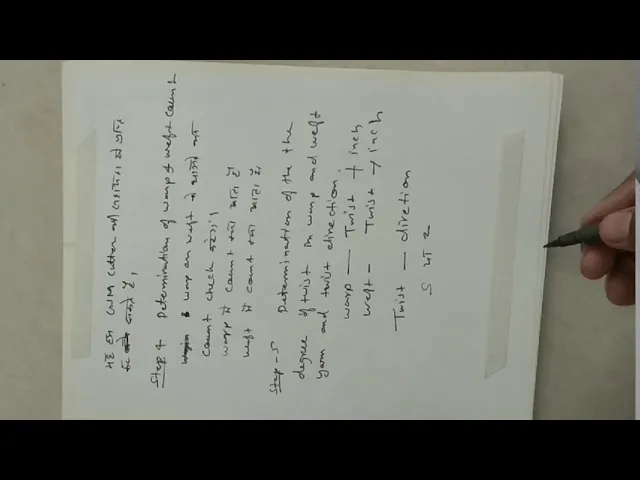 यह हम GSM cutter की सहायता से ज्ञात
करते है,
Step 4 Determination of warp & weft count
warp an weft से धागे का
count check करेंगे,
warp में count क्या आता है
weft में count क्या आता है,
Step-5 Determination of the the
degree of twist in warp and weft
yarn and twist direction.
warp — Twist / inch
weft - Twist / inch
Twist — diretion
S या Z